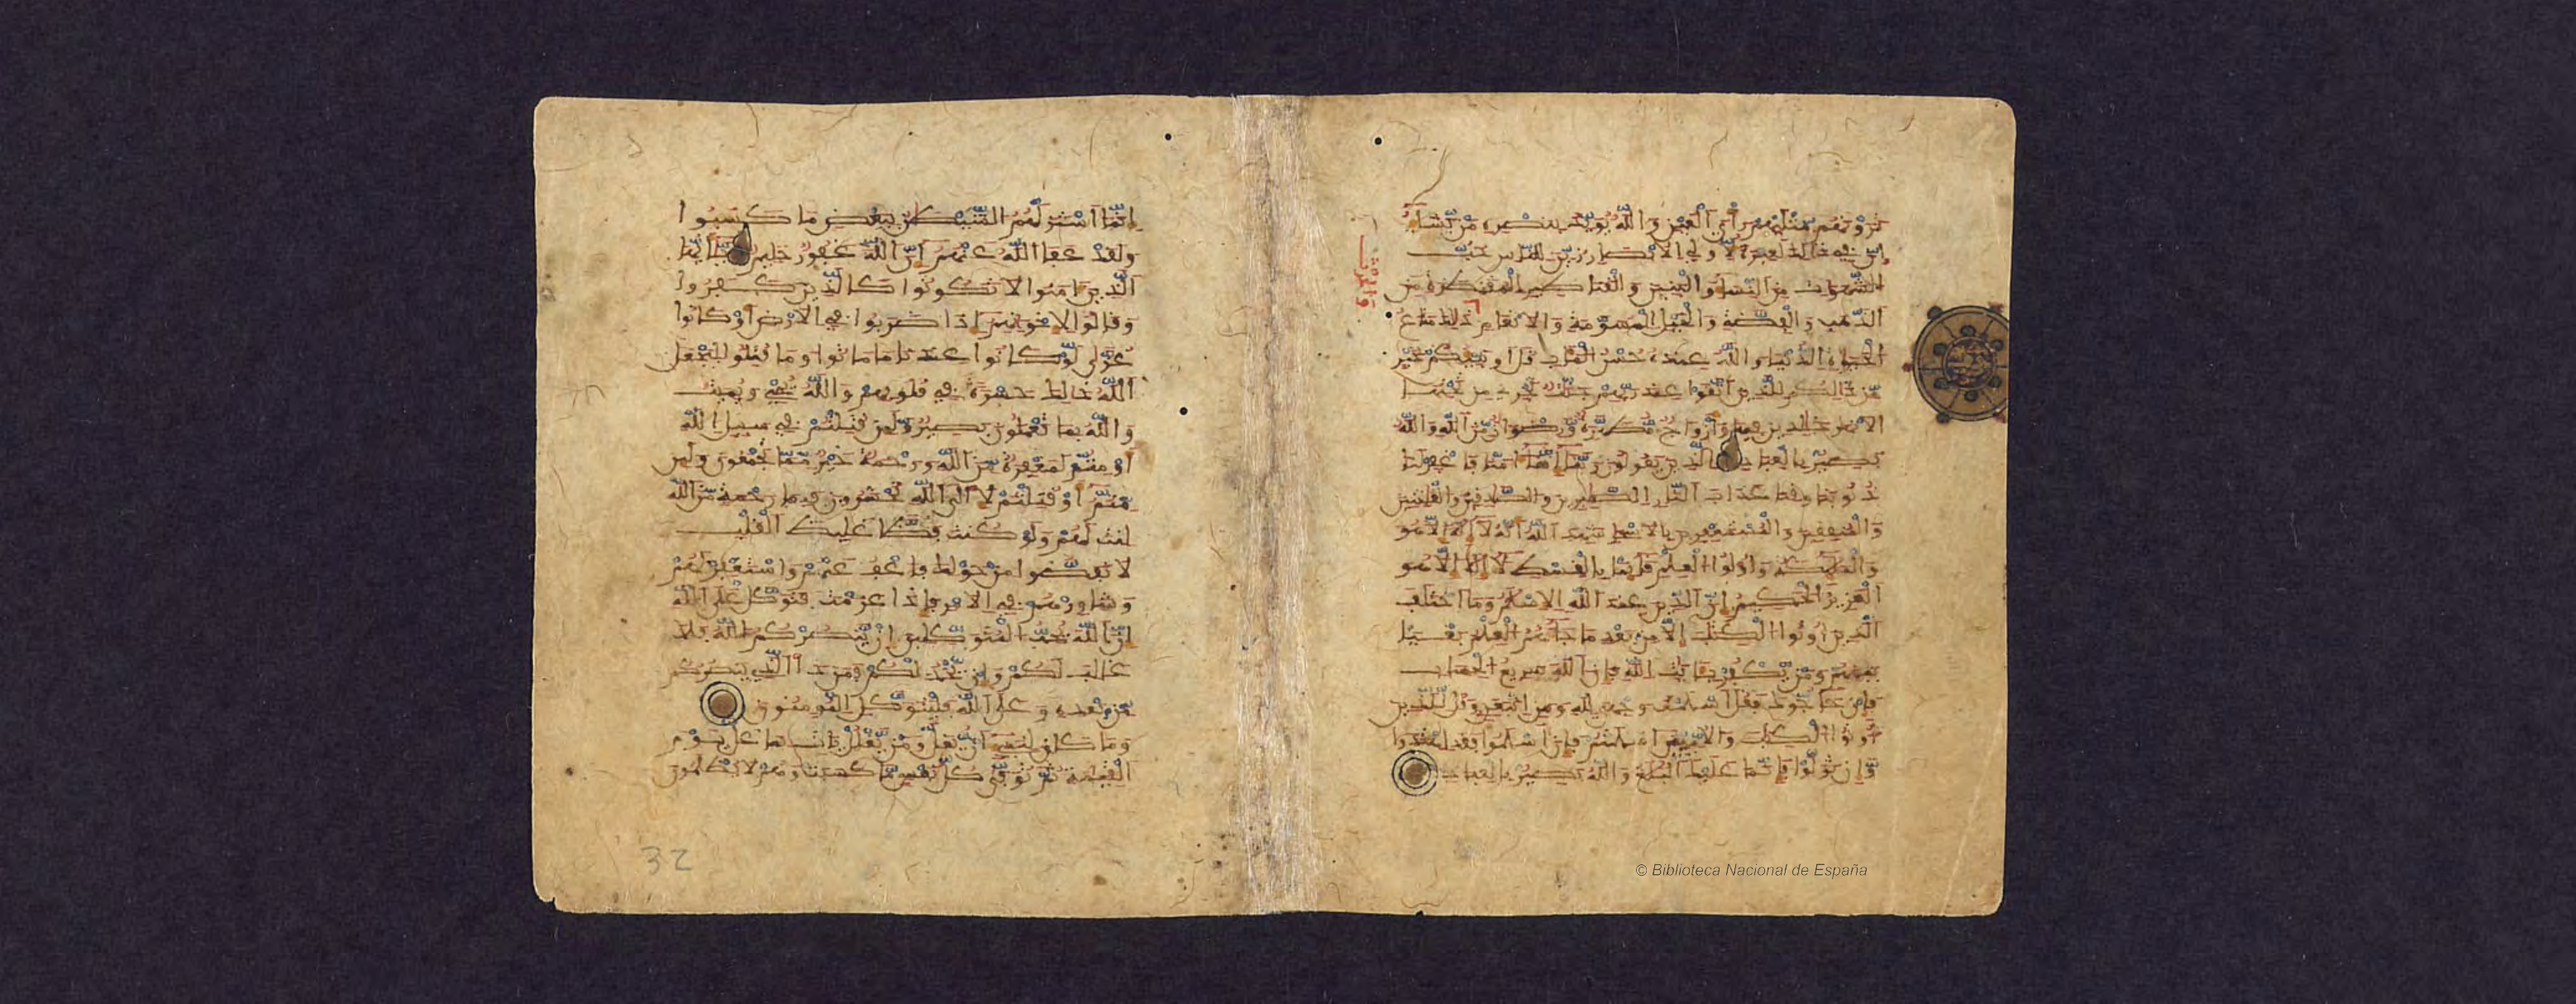 ترونهم مثليهم رأي العين والله يؤيد بنصره من يشاء
ان في ذالك لعبرة لاولي الابصار زين للناس حب
الشهوات من النساء والبنين والقناطير المقنطرة من
الذهب والفضة والخيل المسومة والانعام ذلك متاع
الحيوة الدنيا والله عنده حسن الماب قل اونبئكم بخير
من ذالكم للذين اتقوا عند ربهم جنت تجري من تحتها
الانهر خلدين فيها وازواج مطهرة ورضوان من الله والله
بصير بالعباد الذين يقولون ربنا اننا امنا فاغفر لنا
ذنوبنا وقنا عذاب النار الصبرين والصدقين والقنتين
والمنفقين والمستغفرين بالاسحار شهد الله انه لا اله الا هو
والملئكة واولوا العلم قائما بالقسط لا اله الا هو
العزيز الحكيم ان الدين عند الله الاسلم وما اختلف
الذين اوتوا الكتب الا من بعد ما جاءهم العلم بغيا
بينهم ومن يكفر بئايت الله فان الله سريع الحساب
فان حاجوك فقل اسلمت وجهي لله ومن اتبعن وقل للذين
اوتوا الكتب والامين ءاسلمتم فان اسلموا فقد اهتدوا
وان تولوا فانما عليك البلغ والله بصير بالعباد
© Biblioteca Nacional de España
انما استزلهم الشيطن ببعض ما كسبوا
ولقد عفا الله عنهم ان الله غفور حليم يايها
الذين امنوا لا تكونوا كالذين كفروا
وقالوا لاخونهم اذا ضربوا في الارض او كانوا
غزى لو كانوا عندنا ما ماتوا وما قتلوا ليجعل
الله ذالك حسرة في قلوبهم والله يحي ويميت
والله بما تعملون بصير ولئن قتلتم في سبيل الله
او متم لمغفرة من الله ورحمة خير مما تجمعون ولئن
متم او قتلتم لالى الله تحشرون فبما رحمة من الله
لنت لهم ولو كنت فظا غليظ القلب
لانفضوا من حولك فاعف عنهم واستغفر لهم
وشاورهم في الامر فاذا عزمت فتوكل على الله
ان الله يحب المتوكلين ان ينصركم الله فلا
غالب لكم وان يخذلكم فمن ذا الذي ينصركم
من بعده وعلى الله فليتوكل المومنون
وما كان لنبي ان يغل ومن يغلل يات بما غل يوم
القيمة ثم توفى كل نفس ما كسبت وهم لا يظلمون
32